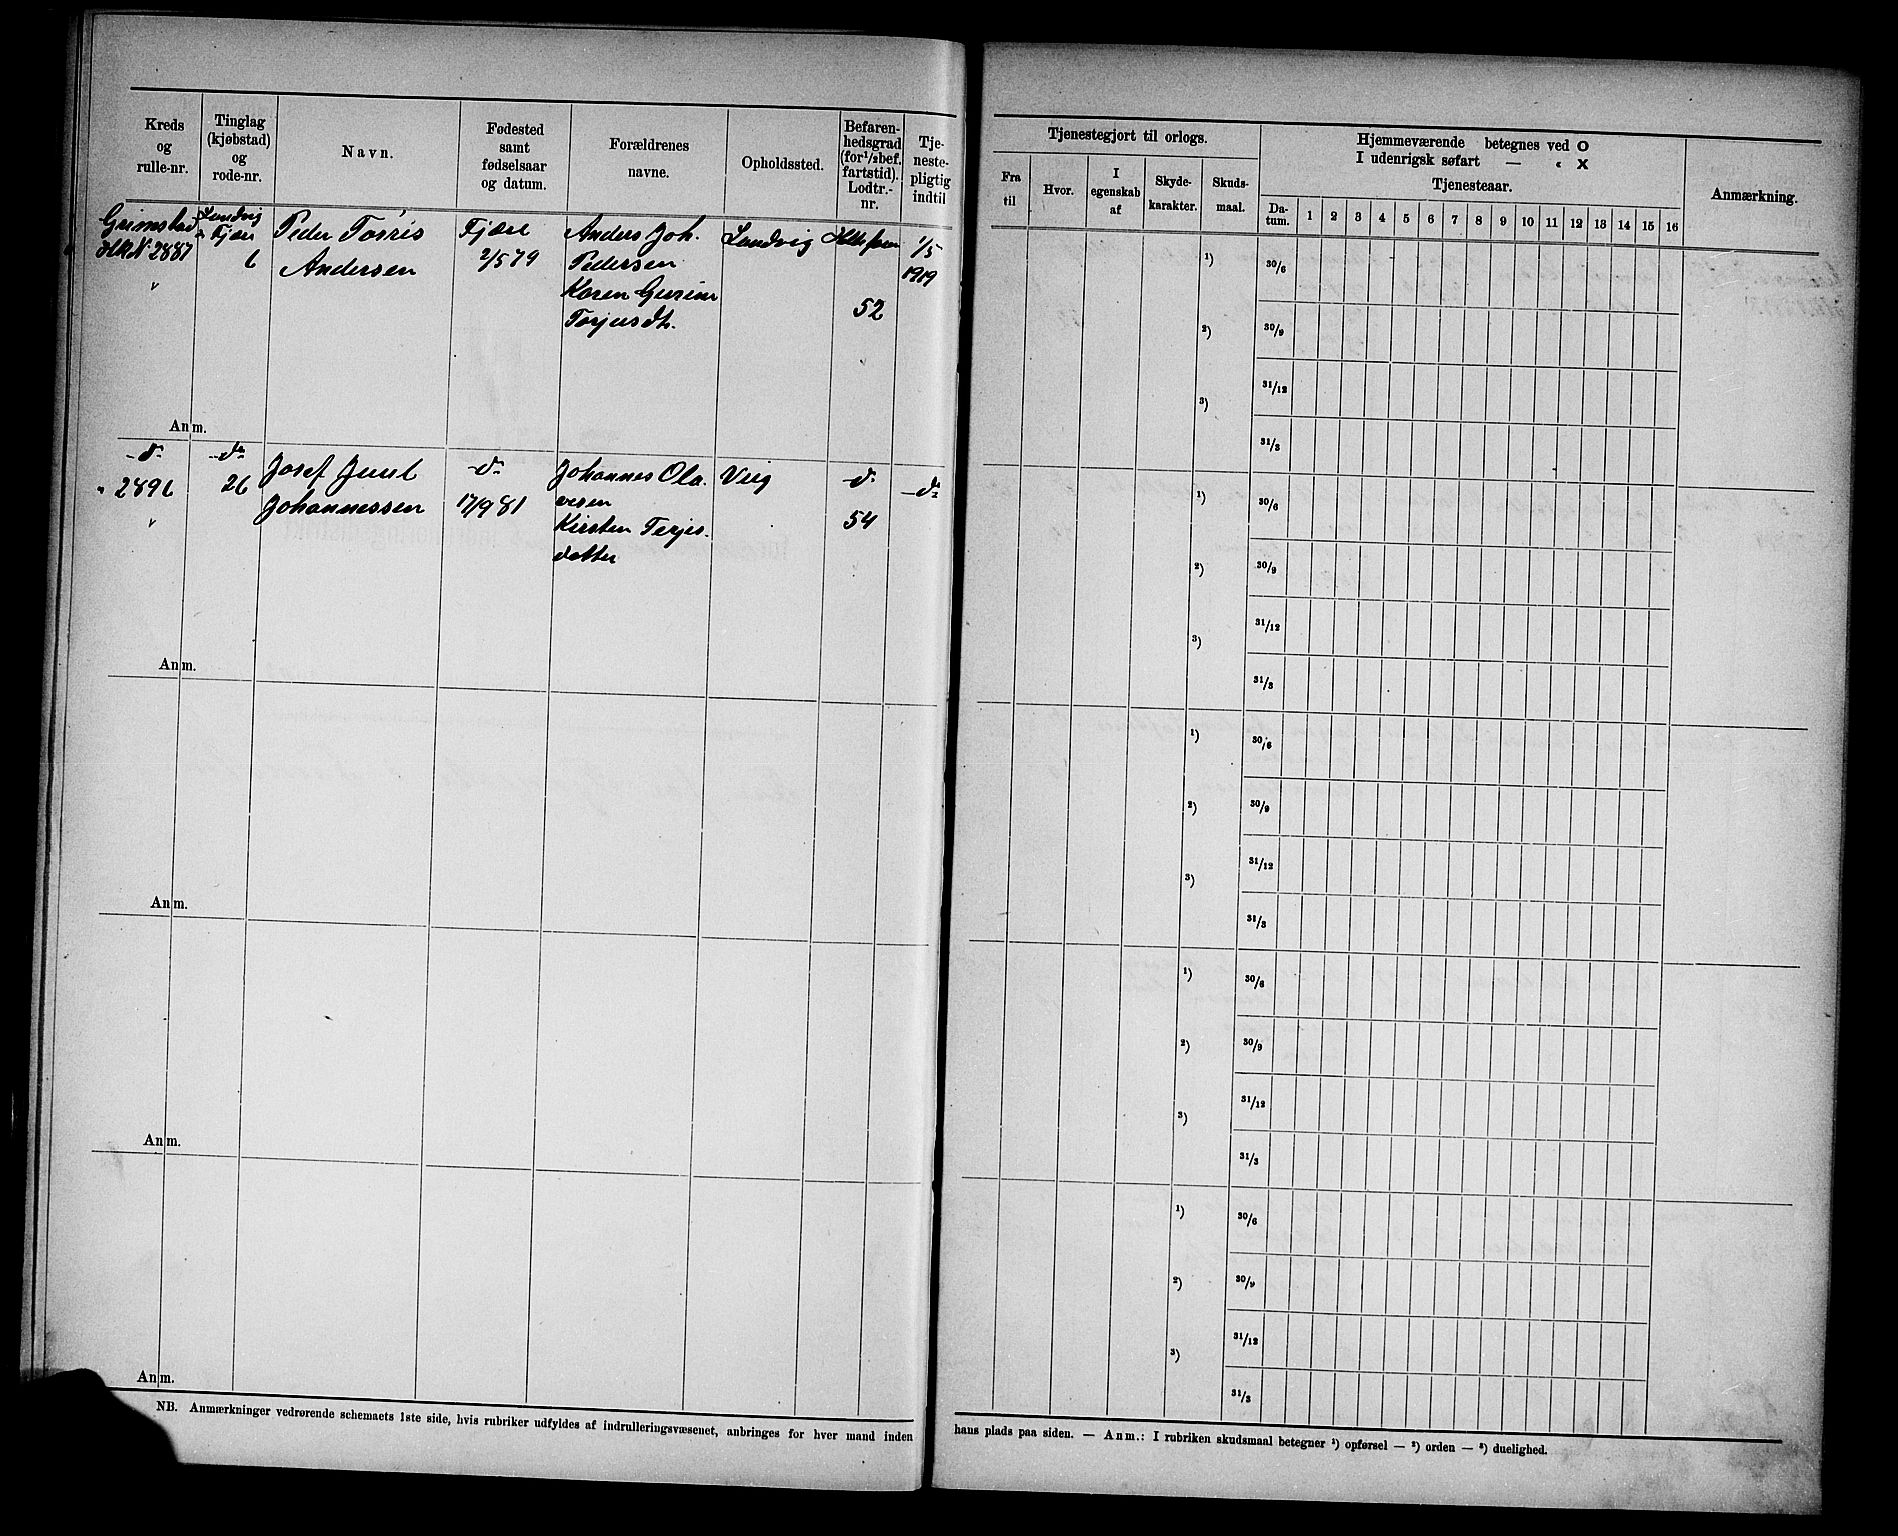 Kreds og rulle-nr.
Tinglag (kjøbstad) og rode-nr.
Navn.
Fødested samt fødselsaar og datum.
Forældrenes navne.
Opholdssted.
Befaren-hedsgrad (for ½bef. fartstid). Lodtr.-nr.
Tje-neste-pligtig indtil
Grimstad
Hk N 2887
"
Landvig
& Fjære
6
Peder Torris
Andersen
Fjære
2/5 79
Anders Joh.
Pedersen
Karen Gurine
Torjusdt.
Landvig
52
1/5
1919
Anm.
-d-
" 2896
"
-do-
26
Josef Juul
Johannessen
-do-
17/9 81
Johannes Ola-
vesen
Kirsten Terjes-
datter
Vig
-d-
54
-do-
Anm.
Anm.
Anm.
Anm.
NB. Anmærkninger vedrørende schemaets 1ste side, hvis rubriker udfyldes af indrulleringsvæsenet, anbringes for hver mand inden
Tjenestegjort til orlogs.
Fra til
Hvor.
I egenskab af
Skyde-karakter.
Skuds-maal.
Hjemmeværende betegnes ved O
I udenrigsk søfart — " X
Tjenesteaar.
Da-tum. 1 2 3 4 5 6 7 8 9 10 11 12 13 14 15 16
Anmærkning.
1) 30/6
2) 30/9
31/12
3)
31/3
1) 30/6
2) 30/9
31/12
3)
31/3
1) 30/6
2) 30/9
31/12
3)
31/3
1) 30/6
2) 30/9
31/12
3)
31/3
1) 30/6
2) 30/9
31/12
3)
31/3
hans plads paa siden. — Anm.: I rubriken skudsmaal betegner ¹) opførsel — ²) orden — ³) duelighed.